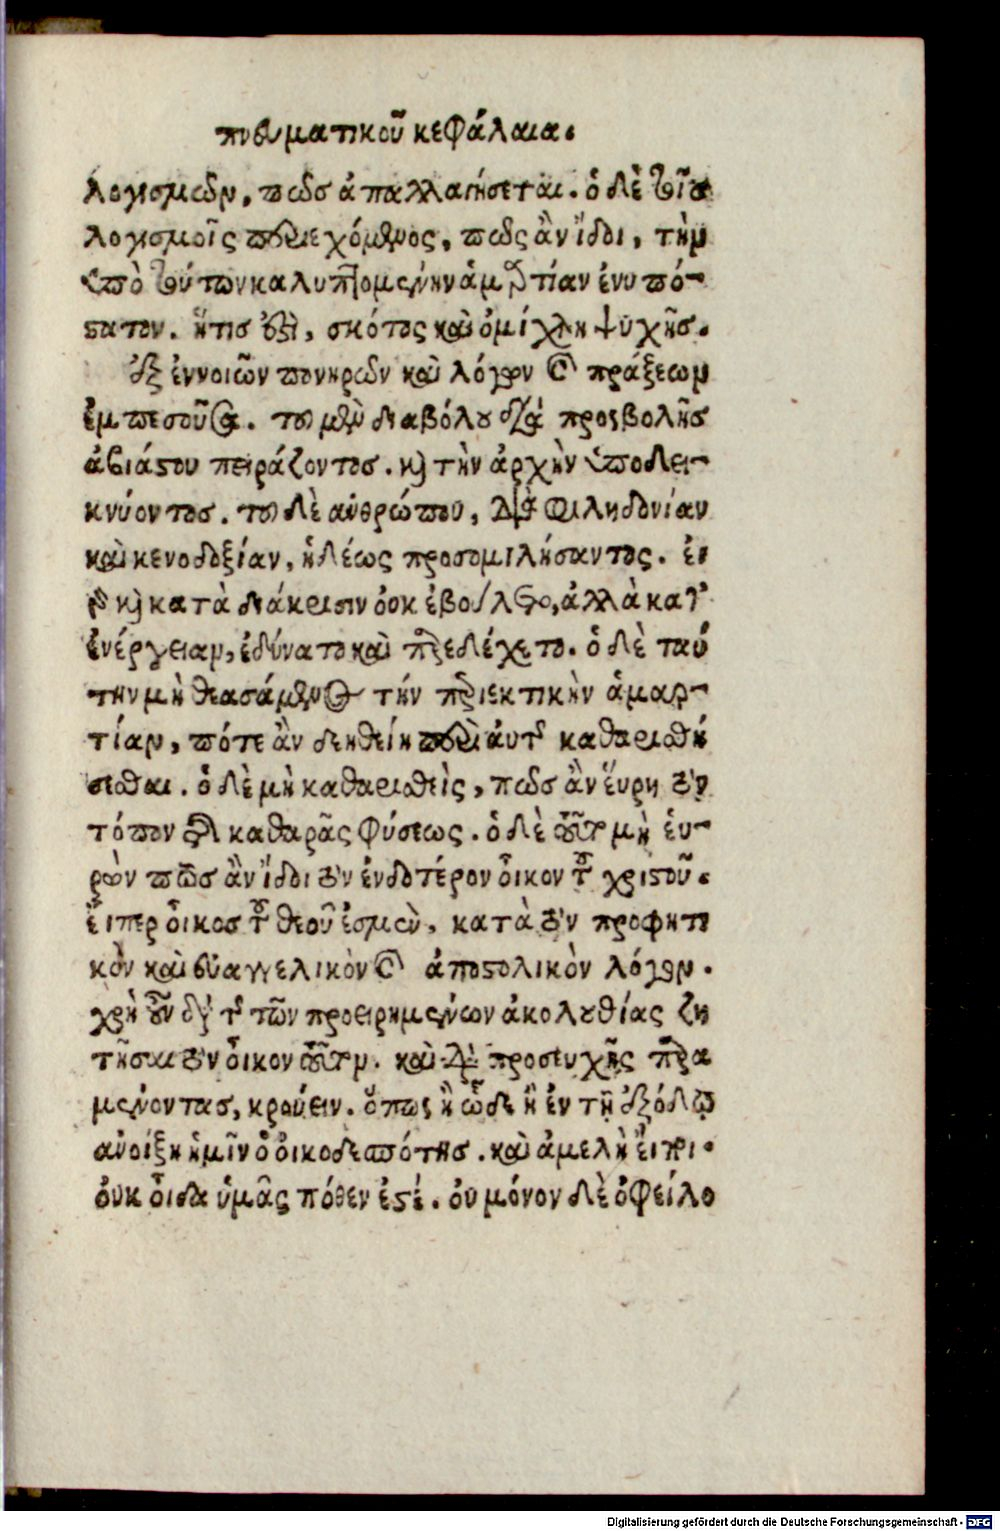 πνευματικοῦ κεφάλαια.
λογισμῶν, πῶς ἀπαλλαγήσεται. ὁ δὲ τοῖς
λογισμοῖς περιεχόμενος, πῶς ἂν ἴδοι, τὴν
ὑπὸ τούτων καλυπτομένην ἁμαρτίαν ἐνυπό-
στατον. ἥτις ἐστὶ, σκότος καὶ ὁμίχλη ψυχῆς.
ἐξ ἐννοιῶν πονηρῶν καὶ λόγων καὶ πράξεων
ἐμπεσοῦσα. τοῦ μὲν διαβόλου διὰ προσβολῆς
ἀβιάστου πειράζοντος. καὶ τὴν ἀρχὴν ὑποδει-
κνύοντος. τοῦ δὲ ἀνθρώπου, διὰ φιληδονίαν
καὶ κενοδοξίαν, ἡδέως προσομιλήσαντος. εἰ
γὰρ καὶ κατὰ διάκρισιν ὀυκ ἐβούλετο, ἀλλὰ κατ'
ἐνέργειαν, ἐδύνατο καὶ παρεδέχετο. ὁ δὲ ταύ
την μὴ θεασάμενος τήν περιεκτικὴν ἁμαρ-
τίαν, πότε ἂν δεηθείη περὶ ἀυτῆς καθαρισθή
σεσθαι. ὁ δὲ μὴ καθαρισθεὶς, πῶς ἂν ἕυρη τὸν
τόπον τῆς καθαρᾶς φύσεως. ὁ δὲ τοῦτον μὴ ἑυ-
ρὼν πῶς ἂν ἴδοι τὸν ἐνδότερον ὀῖκον τοῦ χριστοῦ.
ἐίπερ ὀῖκος τοῦ θεοῦ ἐσμεὺ, κατὰ τὸν προφητι
κὸν καὶ ἐυαγγελικὸν καὶ ἀποστολικὸν λόγον.
χρὴ οὖν ἐκ τῆς τῶν προειρημένων ἀκολουθίας ζη
τῆσαι τὸν ὀῖκον τοῦτον. καὶ διὰ προσευχῆς παρα
μένοντας, κρούειν. ὅπως ἢ ὧδε ἢ ἐν τῇ ἐξόδῳ
ἀνοίξη ἡμῖν ὁ ὀικοδεσπότης. καὶ ἀμελὴ ἐίπη.
ὀυκ ὀῖδα ὑμᾶς πόθεν ἐστέ. ὀυ μόνον δὲ ὀφείλο
Digitalisierung gefördert durch die Deutsche Forschungsgemeinschaft - DFG